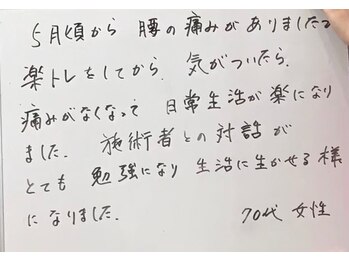 5月頃から 腰の痛みがありました。
楽トレをしてから、気がついたら、
痛みがなくなって 日常生活が楽になり
ました。 施術者との対話が
とても 勉強になり 生活に生かせる様
になりました。
70代 女性